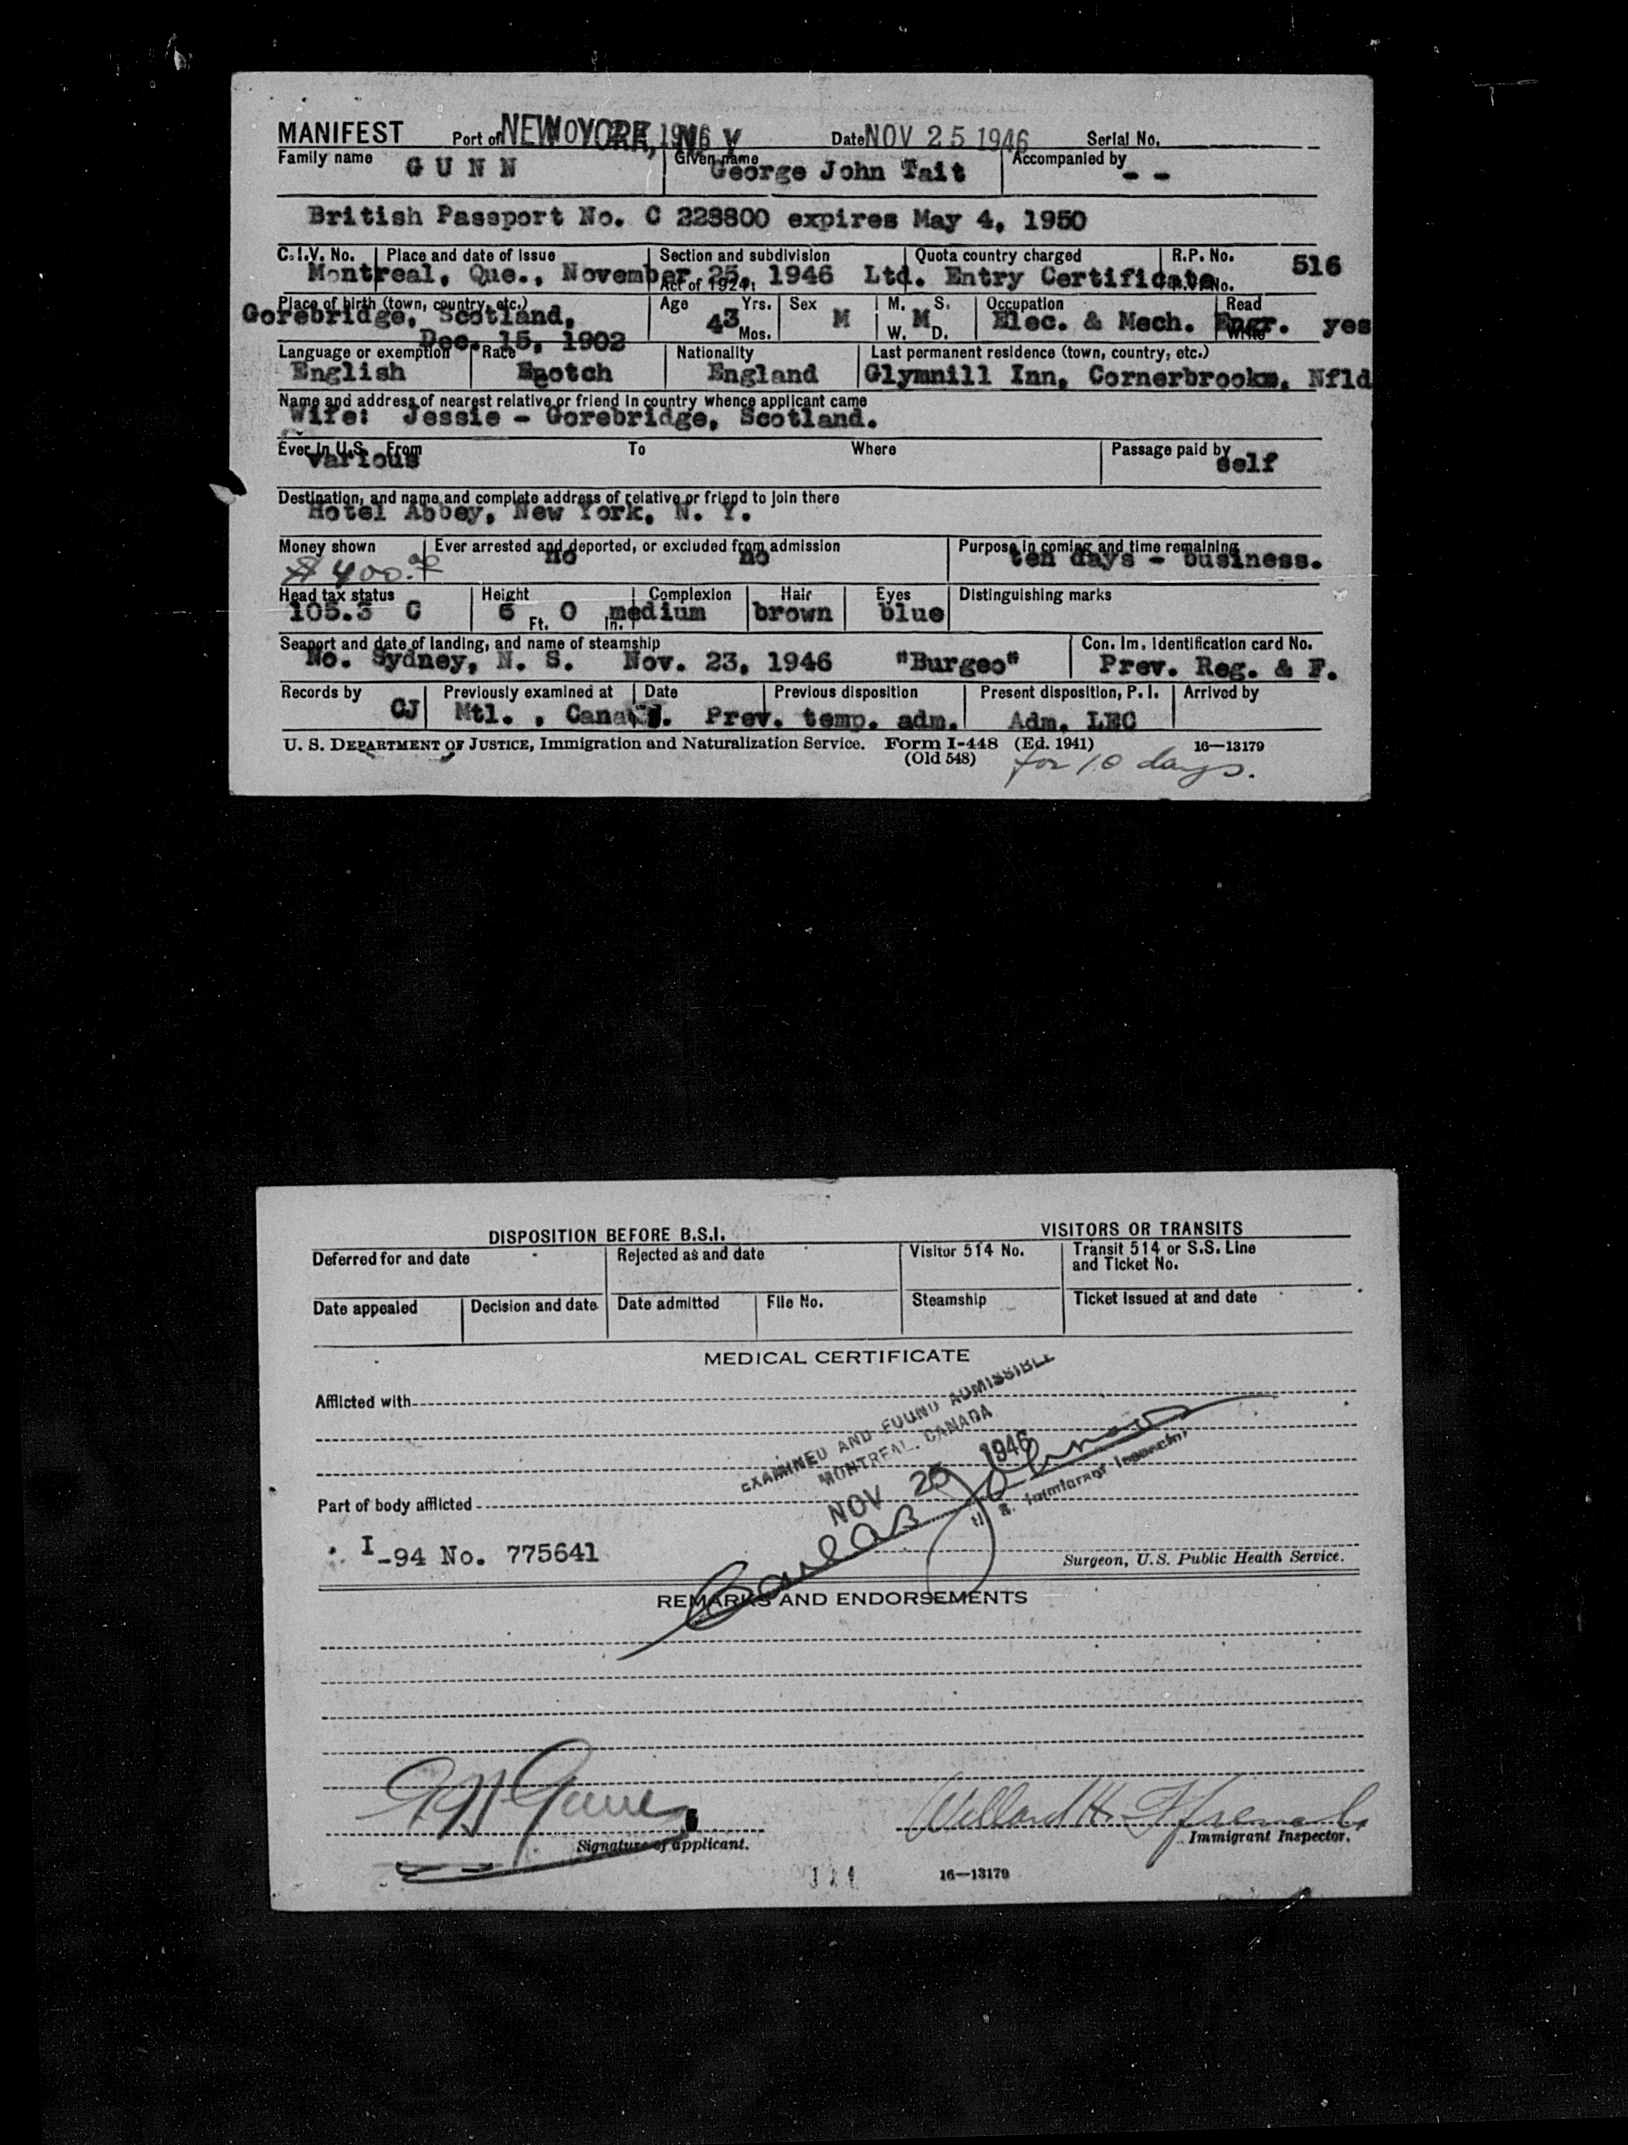 MANIFEST Port of NEW YORK, N Y 1946 Date NOV 25 1946 Serial No.
Family name GUNN Given name George John Tait Accompanied by - -
British Passport No. C 228800 expires May 4, 1950
C.I.V. No. Place and date of issue Section and subdivision Quota country charged R.P. No. 516
Montreal, Que., November 25, 1946 Ltd. Entry Certificate
Act of 1924: No.
Place of birth (town, country, etc.) Age Yrs. Sex M. S. Occupation Read
Gorebridge, Scotland, 43 M M Elec. & Mech. Engr. yes
Dec. 15, 1902 Mos. W. D. Write
Language or exemption Race Nationality Last permanent residence (town, country, etc.)
English Scotch England Glymnill Inn, Cornerbrook, Nfld
Name and address of nearest relative or friend in country whence applicant came
Wife: Jessie - Gorebridge, Scotland.
Ever in U.S. From To Where Passage paid by
various self
Destination, and name and complete address of relative or friend to join there
Hotel Abbey, New York, N. Y.
Money shown Ever arrested and deported, or excluded from admission Purpose in coming and time remaining
$ 400.00 no no ten days - business.
Head tax status Height Complexion Hair Eyes Distinguishing marks
105.3 C 6 Ft. 0 In. medium brown blue
Seaport and date of landing, and name of steamship Con. Im. Identification card No.
No. Sydney, N. S. Nov. 23, 1946 "Burgeo" Prev. Reg. & F.
Records by Previously examined at Date Previous disposition Present disposition, P. I. Arrived by
CJ Mtl. , Canada. Prev. temp. adm. Adm. LEC
U. S. DEPARTMENT OF JUSTICE, Immigration and Naturalization Service. Form I-448 (Ed. 1941) 16—13179
(Old 548) for 10 days.
DISPOSITION BEFORE B.S.I. VISITORS OR TRANSITS
Deferred for and date Rejected as and date Visitor 514 No. Transit 514 or S.S. Line
and Ticket No.
Date appealed Decision and date Date admitted File No. Steamship Ticket issued at and date
MEDICAL CERTIFICATE
Afflicted with
EXAMINED AND FOUND ADMISSIBLE
MONTREAL, CANADA
NOV 1946
U. S. Immigrant Inspector
Part of body afflicted
I-94 No. 775641
Surgeon, U.S. Public Health Service.
REMARKS AND ENDORSEMENTS
Willard H.
Signature of applicant. Immigrant Inspector.
16—13179